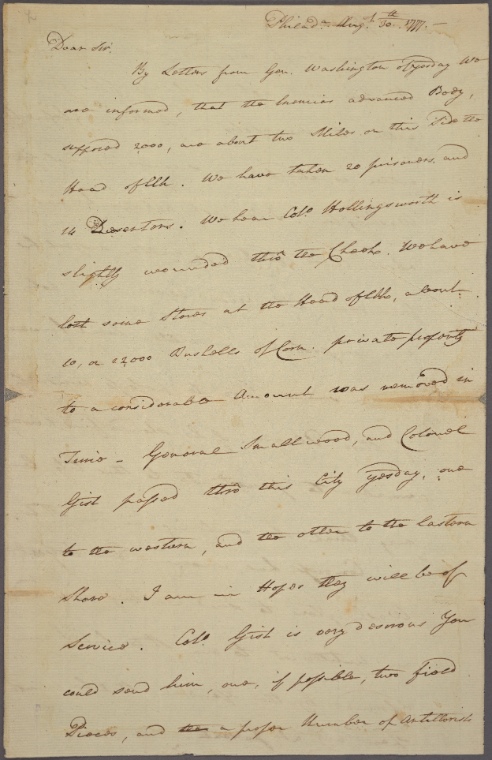 Philad.ª Augt 30th 1777. –
Dear Sir
By Letters from Gen. Washington of yesday We
are informed, that the Enemies advanced Body,
supposed 2000, are about two Miles on this Side the
Head of Elk. We have taken 20 prisoners and
14 Deserters. We hear Colo. Hollingsworth is
slightly wounded thro' the Cheek. We have
lost some Stores at the Head of Elk, about
10, or 12,000 Bushells of Corn. private property
to a considerable Amount was removed in
Time – General Smallwood, and Colonel
Gist passed thro this City yesday, one
to the western, and the other to the Eastern
Shore. I am in Hopes they will be of
Service. Colo. Gist is very desirous You
could send him, one, if possible, two field
Pieces, and a proper Number of Artillerists